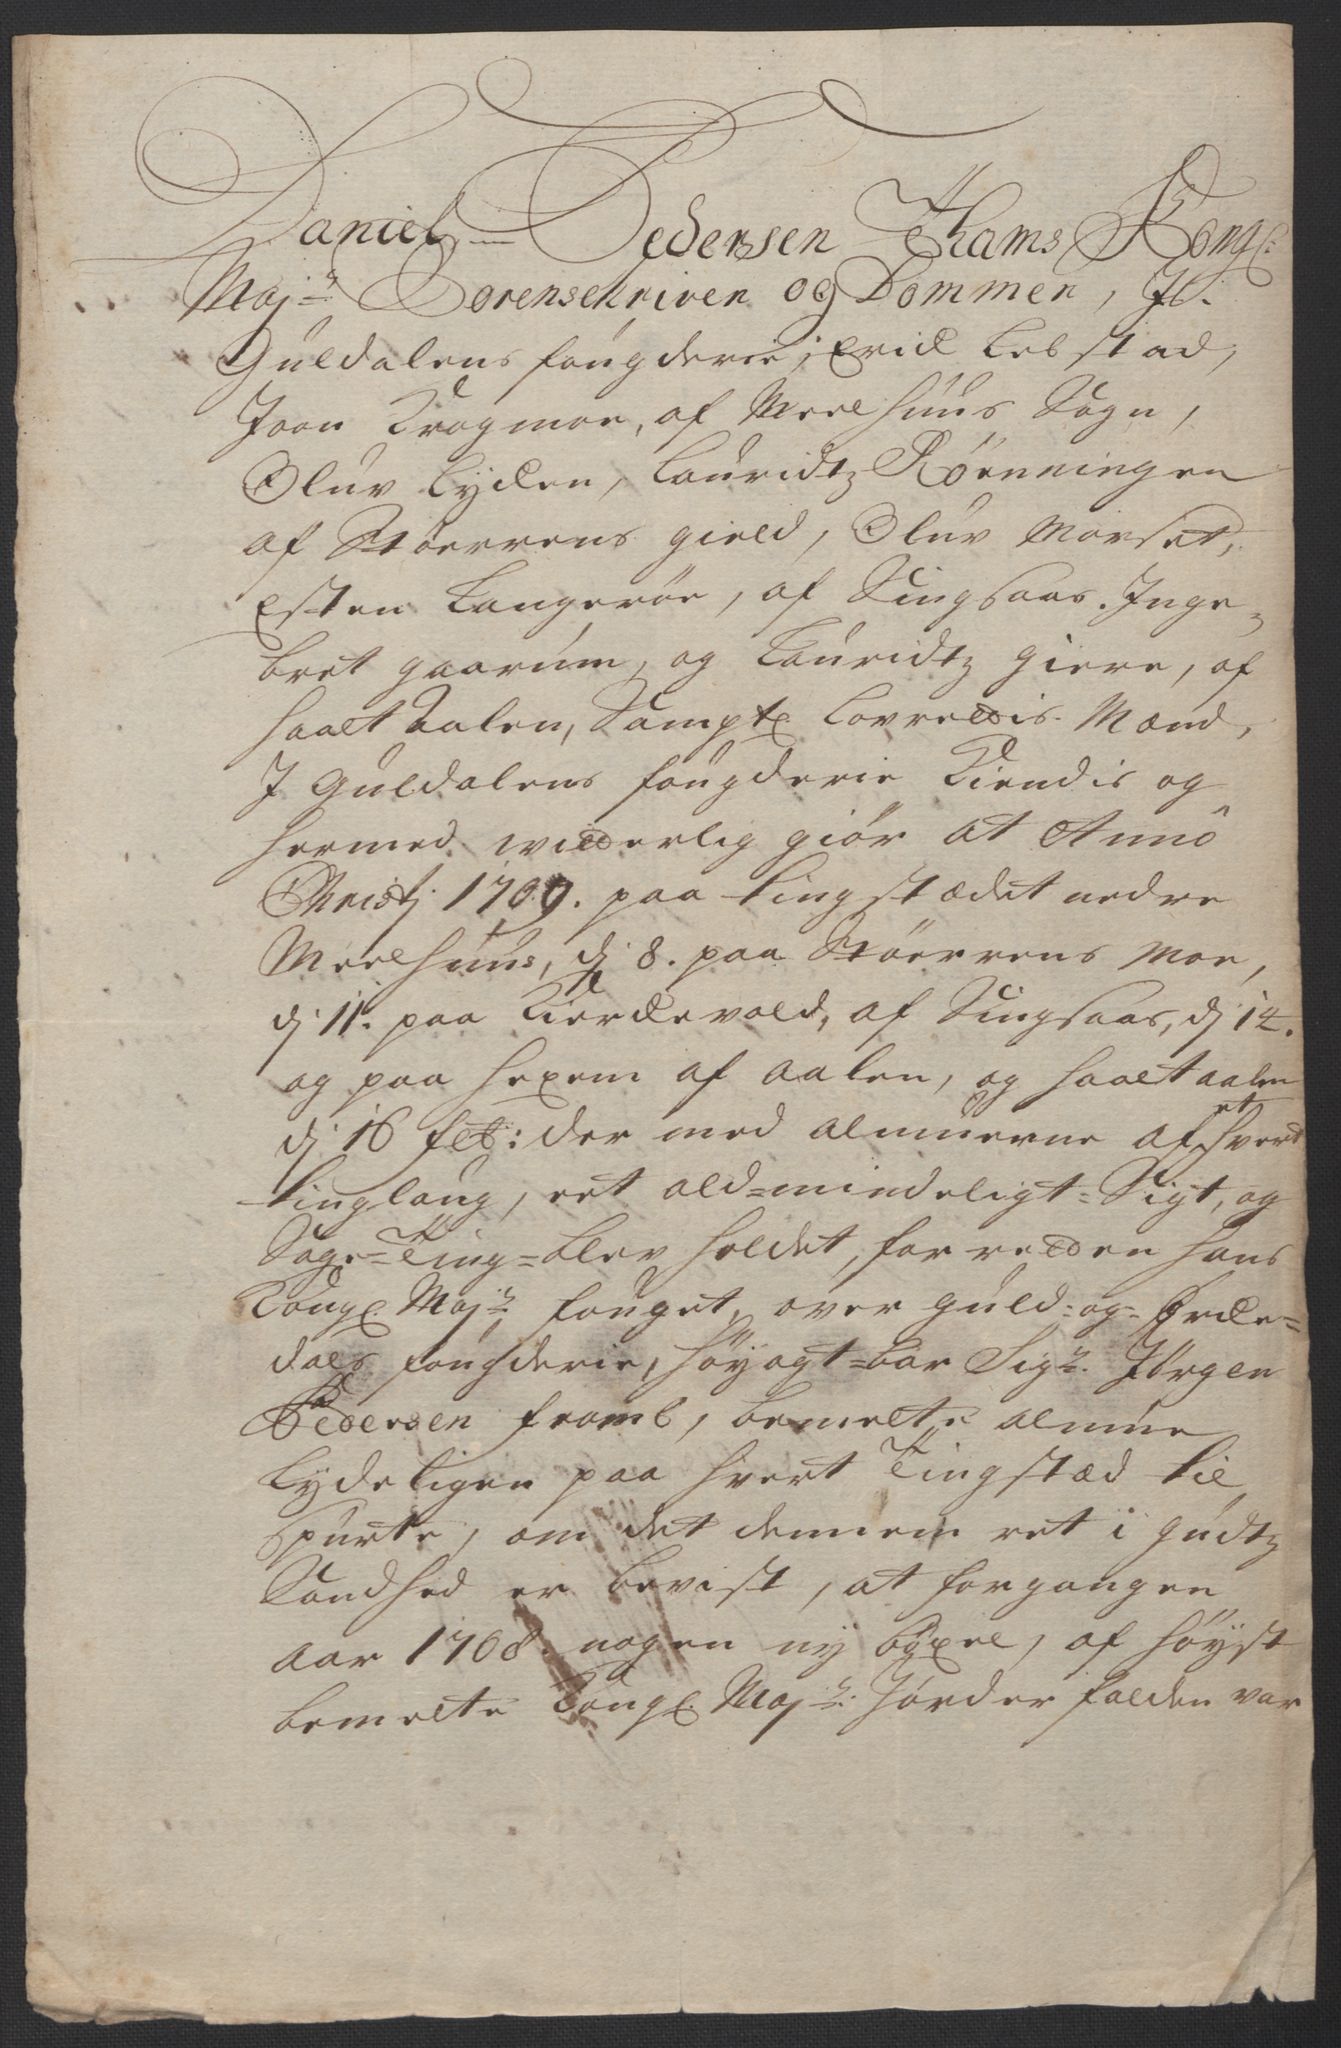 Daniel Pedersen Thams Kongl:
Maj:ts Sorenschriver og Dommer, I
Guldalens fougderie, Erich Lebstad,
Joon Krogmoe, af Meelhuus Sogn,
Oluv Lychen, Lauridtz Röenningen
af Stöerrens gield, Oluv Morset,
Esten Langeröe, af Singsaas. Inge-
bret gaarum, og Lauridtz giere, af
Haaltaalen, Samptl: Lovrettis Mænd,
I Guldalens fougderie Kiendis og
hermed witterlig giör at Anno
Christj 1709. paa tingstædet nedre
Meelhuus, dj 8. paa Stöerrens Moe,
dj 11. paa Kierchevold, af Singsaas, dj 14.
og paa Hexem af aalen, og Haaltaalen
dj 16 feb: der med almuerne af hvert et
tinglaug, ret ald-mindeligt-Sigt, og
Sage-Ting-blev holdet, for retten hans
Kongl: Maj:ts fouget, over guld- og Örche-
dals foughderie, Höyagt-bar Sigr. Jörgen
Pedersen framb, bemelte almue
Lydeligen paa hvert Tingstæd til
spurte, om det dennem ret i gudtz
Sandhed er bevist, at forgangen
aar 1708. nogen ny böxel, af höyst
bemelte Kongl: Maj:ts Jorder falden var